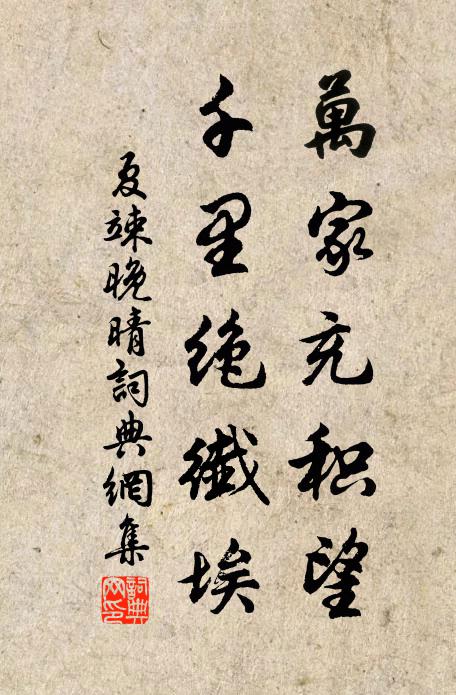 萬家充积望
千里绝纖埃
夏竦晚晴詞典網集
詞典网印